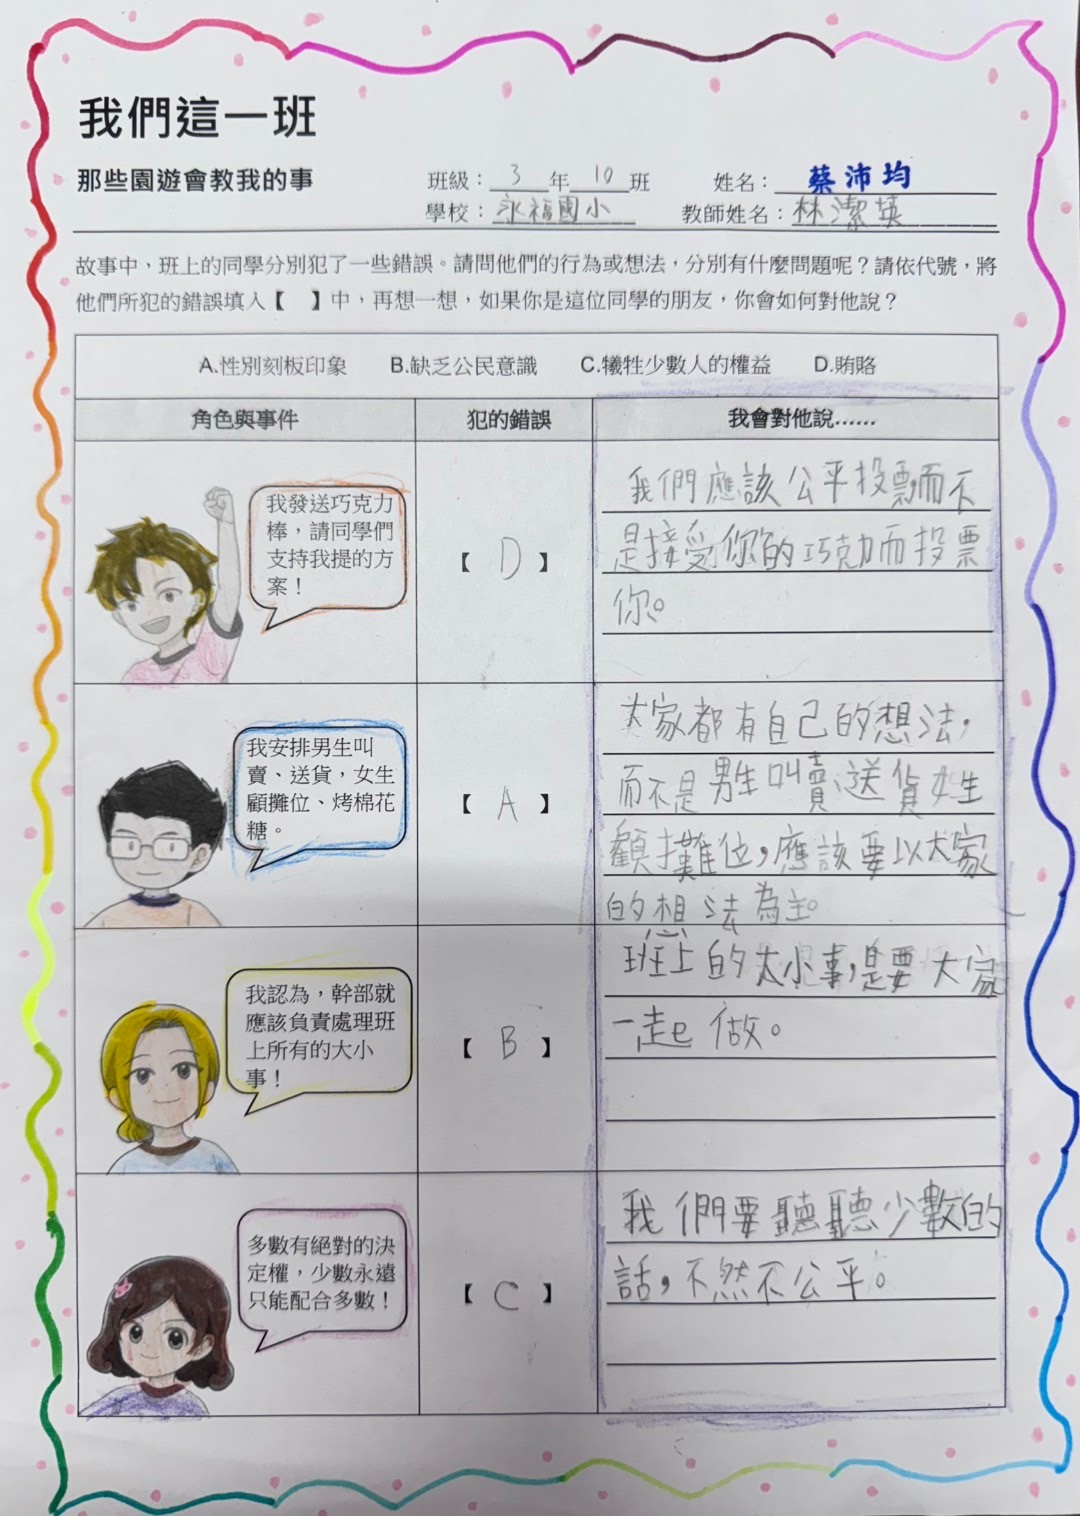 我們這一班
那些園遊會教我的事
班級：3年10班 姓名：蔡沛均
學校：永福國小 教師姓名：林潔英
故事中，班上的同學分別犯了一些錯誤。請問他們的行為或想法，分別有什麼問題呢？請依代號，將
他們所犯的錯誤填入【　】中，再想一想，如果你是這位同學的朋友，你會如何對他說？
A.性別刻板印象 B.缺乏公民意識 C.犧牲少數人的權益 D.賄賂
角色與事件 犯的錯誤 我會對他說……
我發送巧克力
棒，請同學們
支持我提的方
案！
【 D 】
我們應該公平投票而不
是接受你的巧克力而投票
你。
我安排男生叫
賣、送貨，女生
顧攤位、烤棉花
糖。
【 A 】
大家都有自己的想法，
而不是男生叫賣、送貨女生
顧攤位，應該要以大家
的想法為主。
我認為，幹部就
應該負責處理班
上所有的大小
事！
【 B 】
班上的大小事，是要大家
一起做。
多數有絕對的決
定權，少數永遠
只能配合多數！
【 C 】
我們要聽聽少數的
話，不然不公平。